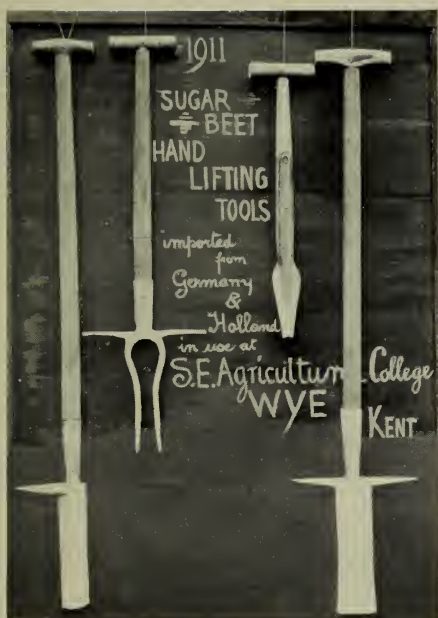 1911
SUGAR
BEET
HAND
LIFTING
TOOLS
imported
from
Germany
&
Holland
in use at
S.E. Agricultural College
WYE
KENT